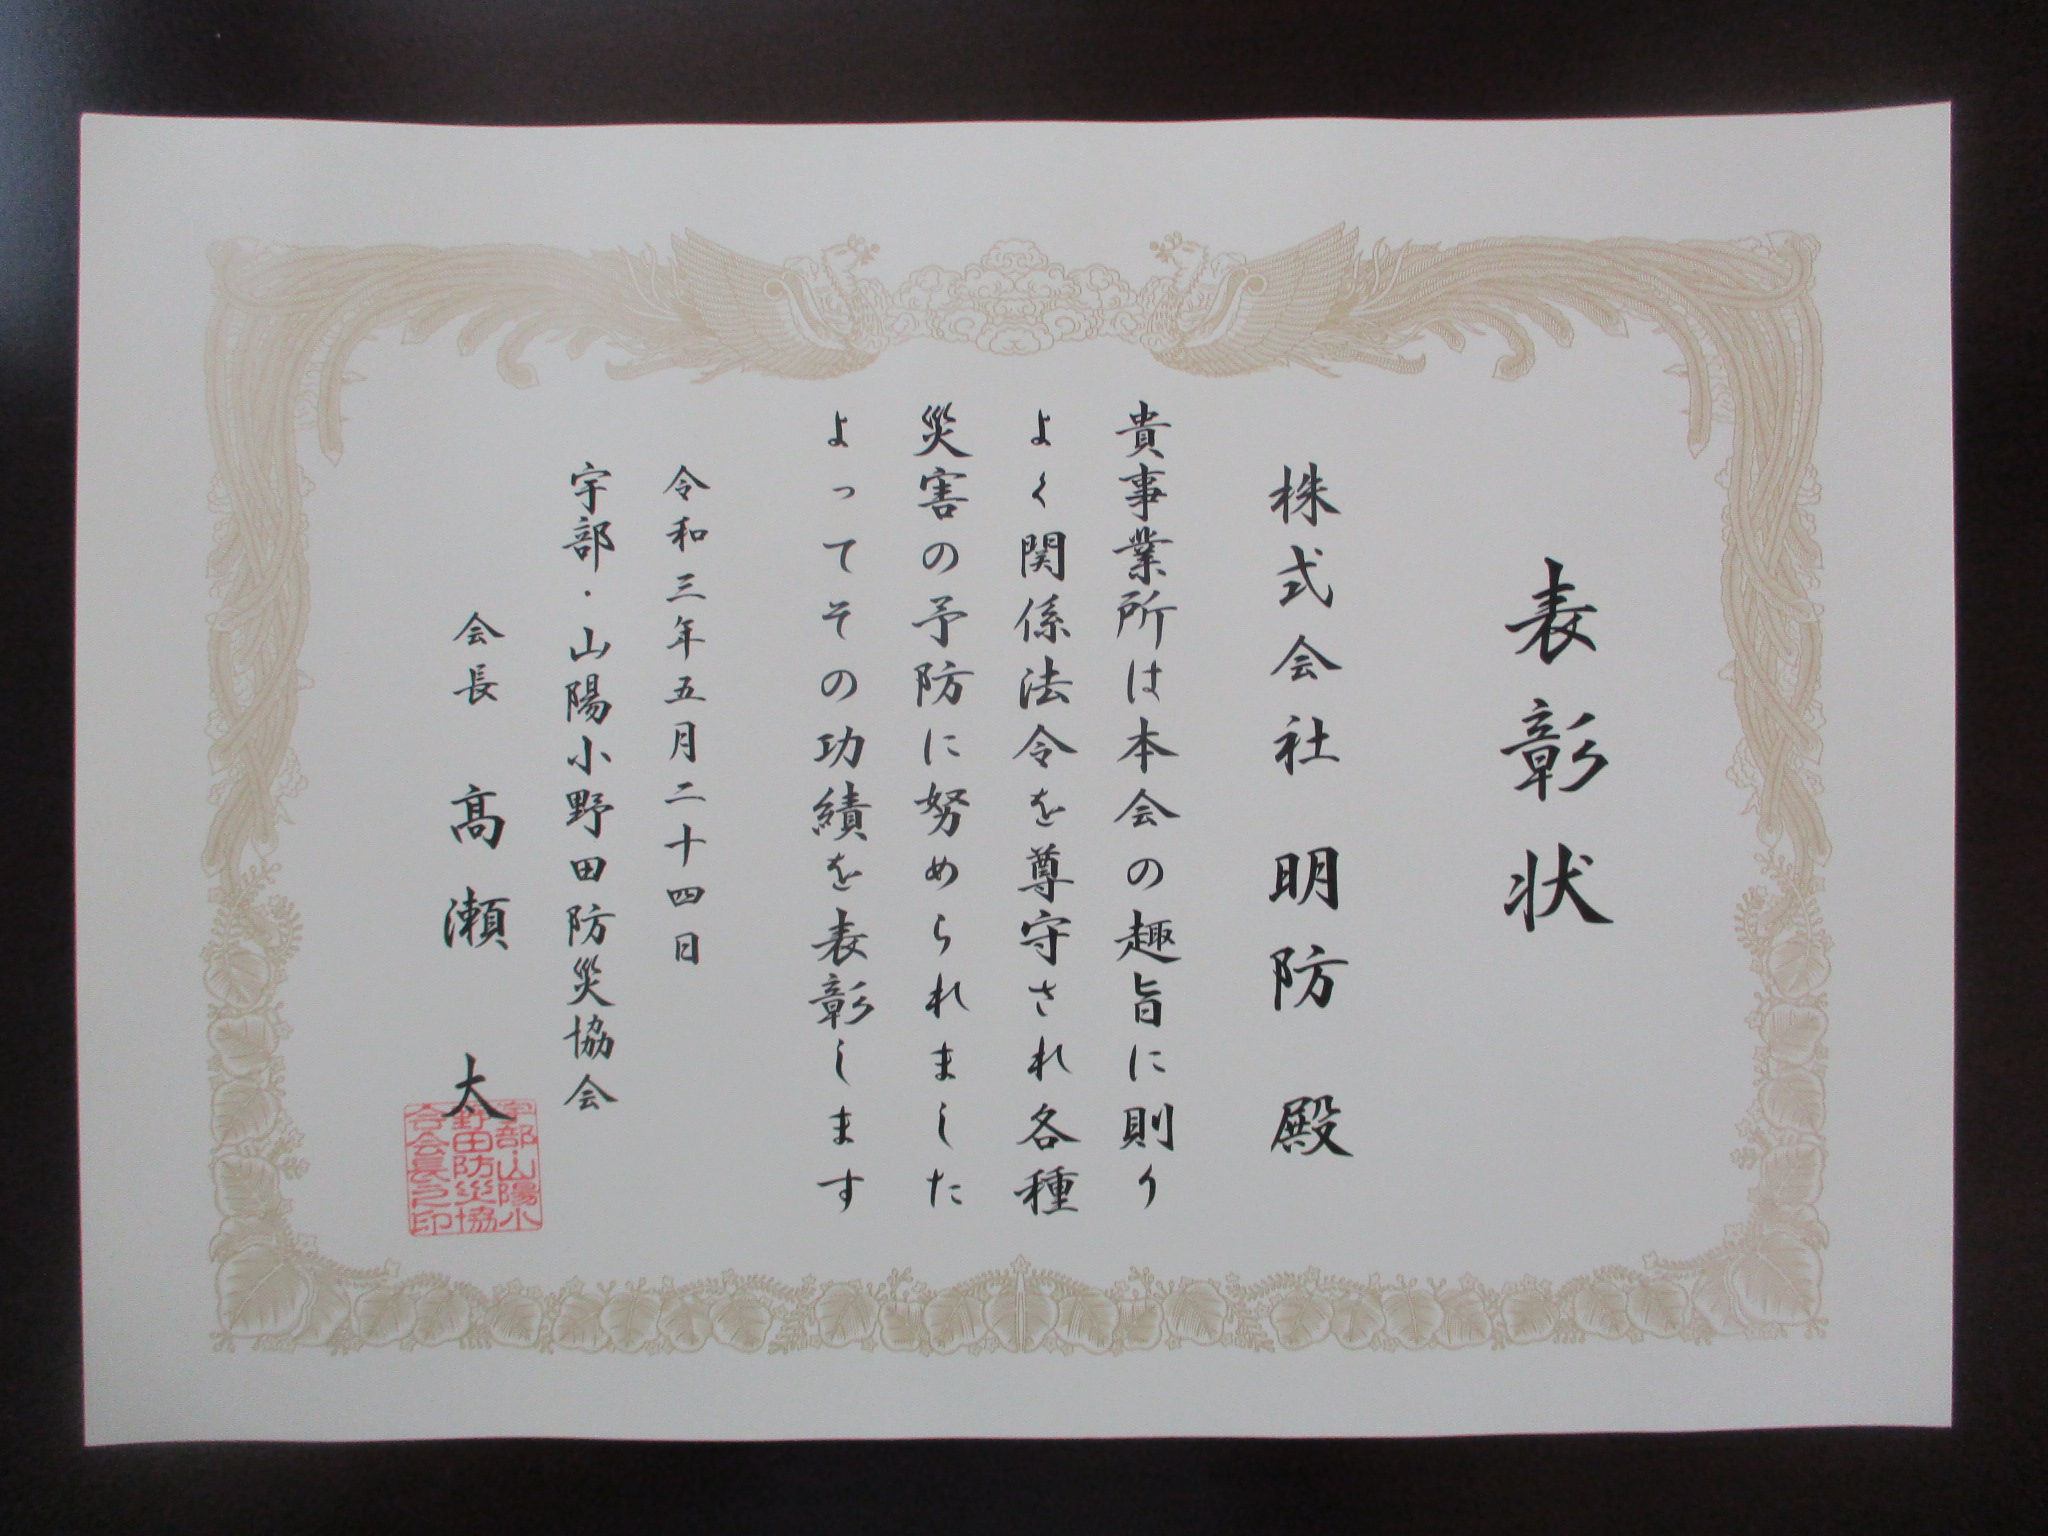 表彰状
株式会社 明防 殿
貴事業所は本会の趣旨に則り
よく関係法令を尊守され各種
災害の予防に努められました
よってその功績を表彰します
令和三年五月二十四日
宇部・山陽小野田防災協会
会長 髙瀬 太
宇部・山陽小
野田防災協
会会長之印